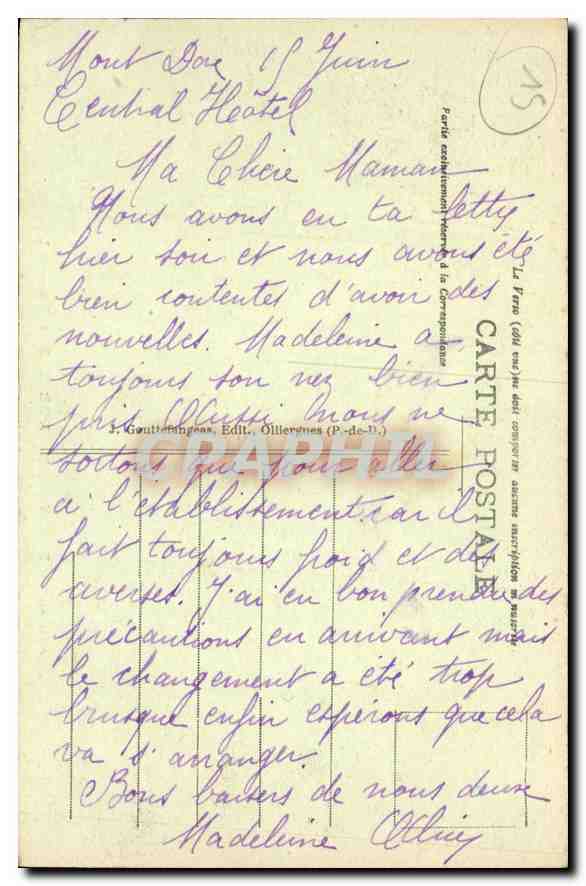 Mont Dore 15 Juin
Central Hôtel
15
Ma Chère Maman
Nous avons eu ta lettre
hier soir et nous avons été
bien contentes d'avoir des
nouvelles. Madeleine a
toujours son nez bien
pris. Aussi nous ne
sortons que pour aller
à l'établissement car il
fait toujours froid et des
averses. J'ai eu bon prendre des
précautions en arrivant mais
le changement a été trop
brusque enfin espérons que cela
va s'arranger.
Bons baisers de nous deux
Madeleine
CARTE POSTALE
Partie exclusivement réservée à la Correspondance
Le Verso (côté vue) ne doit comporter aucune inscription manuscrite
J. Gouttefangeas, Edit., Olliergues (P.-de-D.)
CPAPHIL